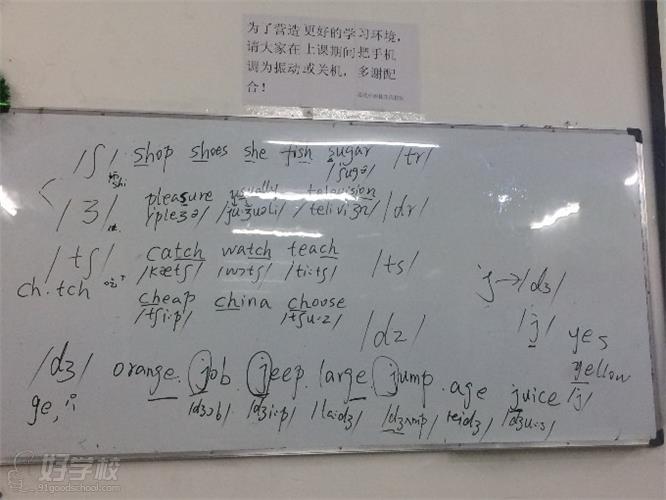 为了营造更好的学习环境，
请大家在上课期间把手机
调为振动或关机，多谢配
合！
/ʃ/ shop shoes she fish sugar /tr/
shi /ʃugə/
/ʒ/ pleasure usually television /dr/
/pleʒə/ /ju:ʒuəli/ /teliviʒn/
/tʃ/ catch watch teach /ts/
/kætʃ/ /wɔtʃ/ /ti:tʃ/
ch. tch
cheap china choose
/tʃi:p/ /tʃu:z/
/dz/
j→/dʒ/
/j/ yes
yellow
/j/
/dʒ/ orange. job jeep. large. jump. age juice
ge, j: /dʒɔb/ /dʒi:p/ /la:dʒ/ /dʒʌmp/ /eidʒ/ /dʒu:s/
好学校
91goodschool.com